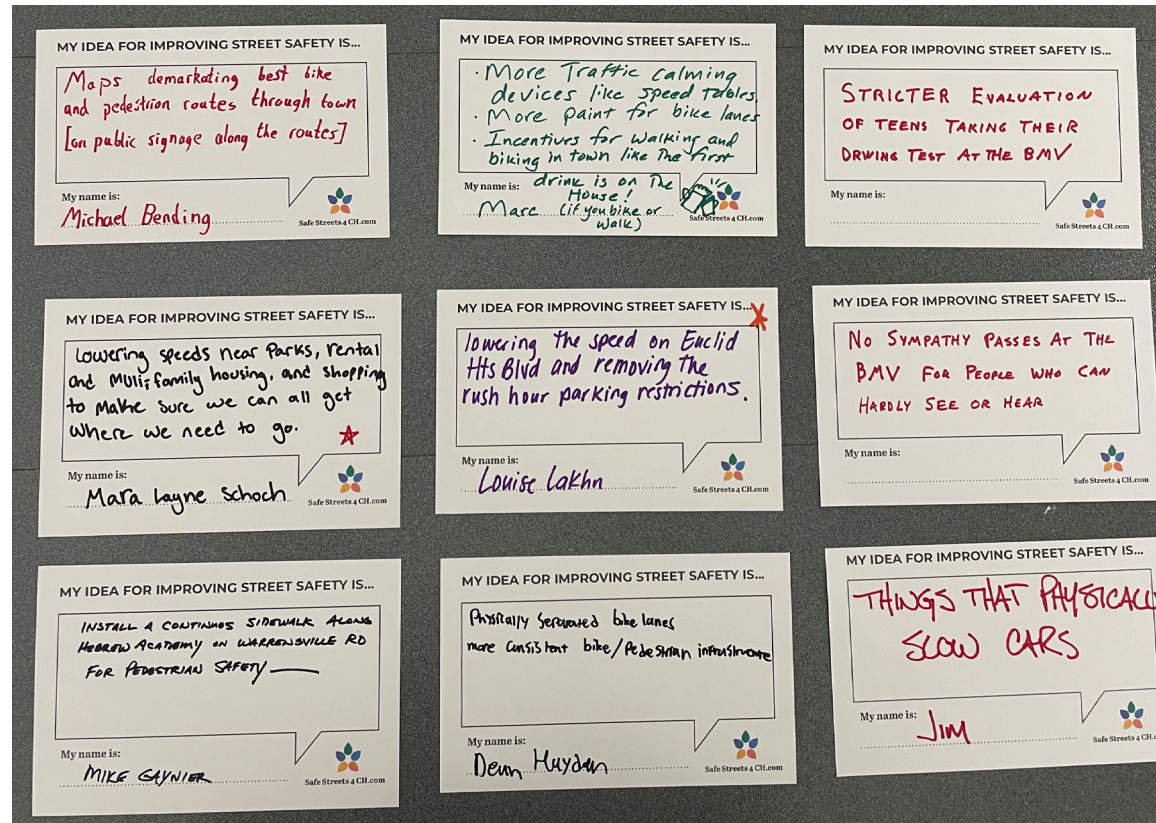 MY IDEA FOR IMPROVING STREET SAFETY IS...
Maps demarkating best bike
and pedestrian routes through town
[on public signage along the routes]
My name is:
Michael Bending
Safe Streets 4 CH.com
MY IDEA FOR IMPROVING STREET SAFETY IS...
· More Traffic calming
devices like speed tables
· More paint for bike lanes
· Incentives for walking and
biking in town like the first
drink is on The
House!
(if you bike or
walk)
My name is:
Marc
Safe Streets 4 CH.com
MY IDEA FOR IMPROVING STREET SAFETY IS...
STRICTER EVALUATION
OF TEENS TAKING THEIR
DRIVING TEST AT THE BMV
My name is:
Safe Streets 4 CH.com
MY IDEA FOR IMPROVING STREET SAFETY IS...
Lowering speeds near Parks, rental
and Multifamily housing, and shopping
to make sure we can all get
where we need to go.
My name is:
Mara Layne Schoch
Safe Streets 4 CH.com
MY IDEA FOR IMPROVING STREET SAFETY IS...
lowering the speed on Euclid
Hts Blvd and removing the
rush hour parking restrictions.
My name is:
Louise Lakhn
Safe Streets 4 CH.com
MY IDEA FOR IMPROVING STREET SAFETY IS...
NO SYMPATHY PASSES AT THE
BMV FOR PEOPLE WHO CAN
HARDLY SEE OR HEAR
My name is:
Safe Streets 4 CH.com
MY IDEA FOR IMPROVING STREET SAFETY IS...
INSTALL A CONTINUOS SIDEWALK ALONG
HEBREW ACADEMY ON WARRENSVILLE RD
FOR PEDESTRIAN SAFETY
My name is:
MIKE GAYNIER
Safe Streets 4 CH.com
MY IDEA FOR IMPROVING STREET SAFETY IS...
Physically Separated bike lanes
more consistent bike/Pedestrian infrastructure
My name is:
Hayden
Safe Streets 4 CH.com
MY IDEA FOR IMPROVING STREET SAFETY IS...
THINGS THAT PHYSICALL
SLOW CARS
My name is:
JIM
Safe Streets 4 CH.c